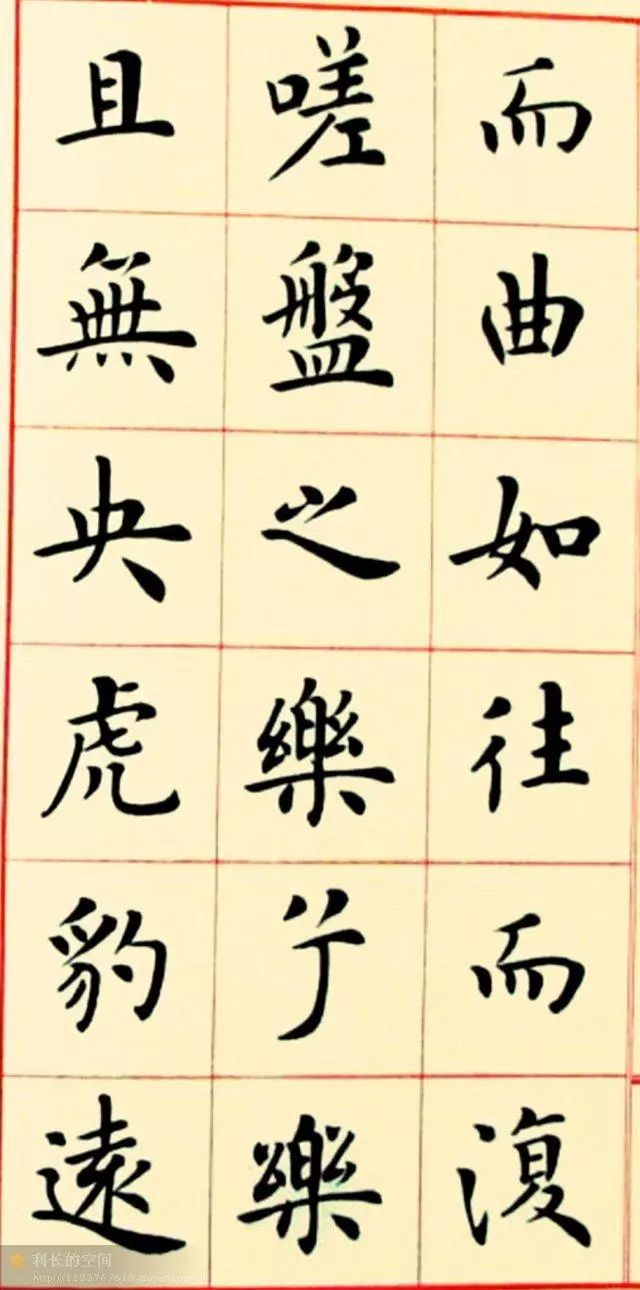 而曲如往而復
嗟盤之樂兮樂
且無央虎豹遠
科长的空间
http://1193767618.qzone.qq.com